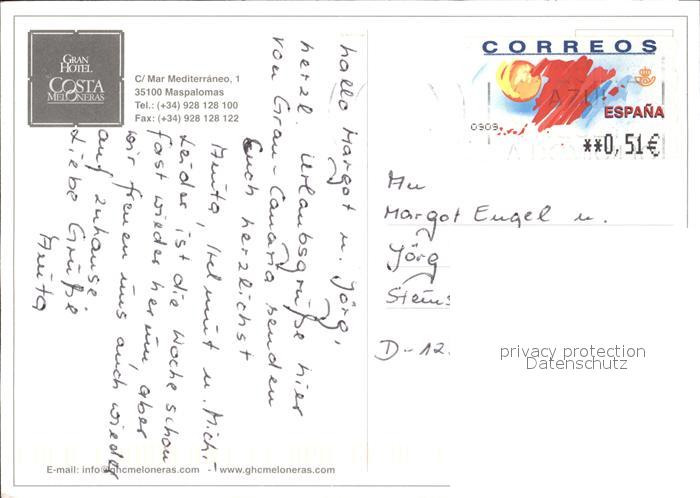 GRAN
HOTEL
COSTA
MELONERAS
C/ Mar Mediterráneo, 1
35100 Maspalomas
Tel.: (+34) 928 128 100
Fax: (+34) 928 128 122
hallo Margot u. Jörg,
herzl. Urlaubsgrüße hier
von Gran-Canaria senden
Euch herzlichst
Anita, Helmut u. Michi
Leider ist die Woche schon
fast wieder herum, aber
wir freuen uns auch wieder
auf zuhause
Liebe Grüße
Anita
CORREOS
ESPAÑA
0909
**0,51€
An
Margot Engel u.
Jörg
Steins
D-12.
privacy protection
Datenschutz
E-mail: info@ghcmeloneras.com - www.ghcmeloneras.com